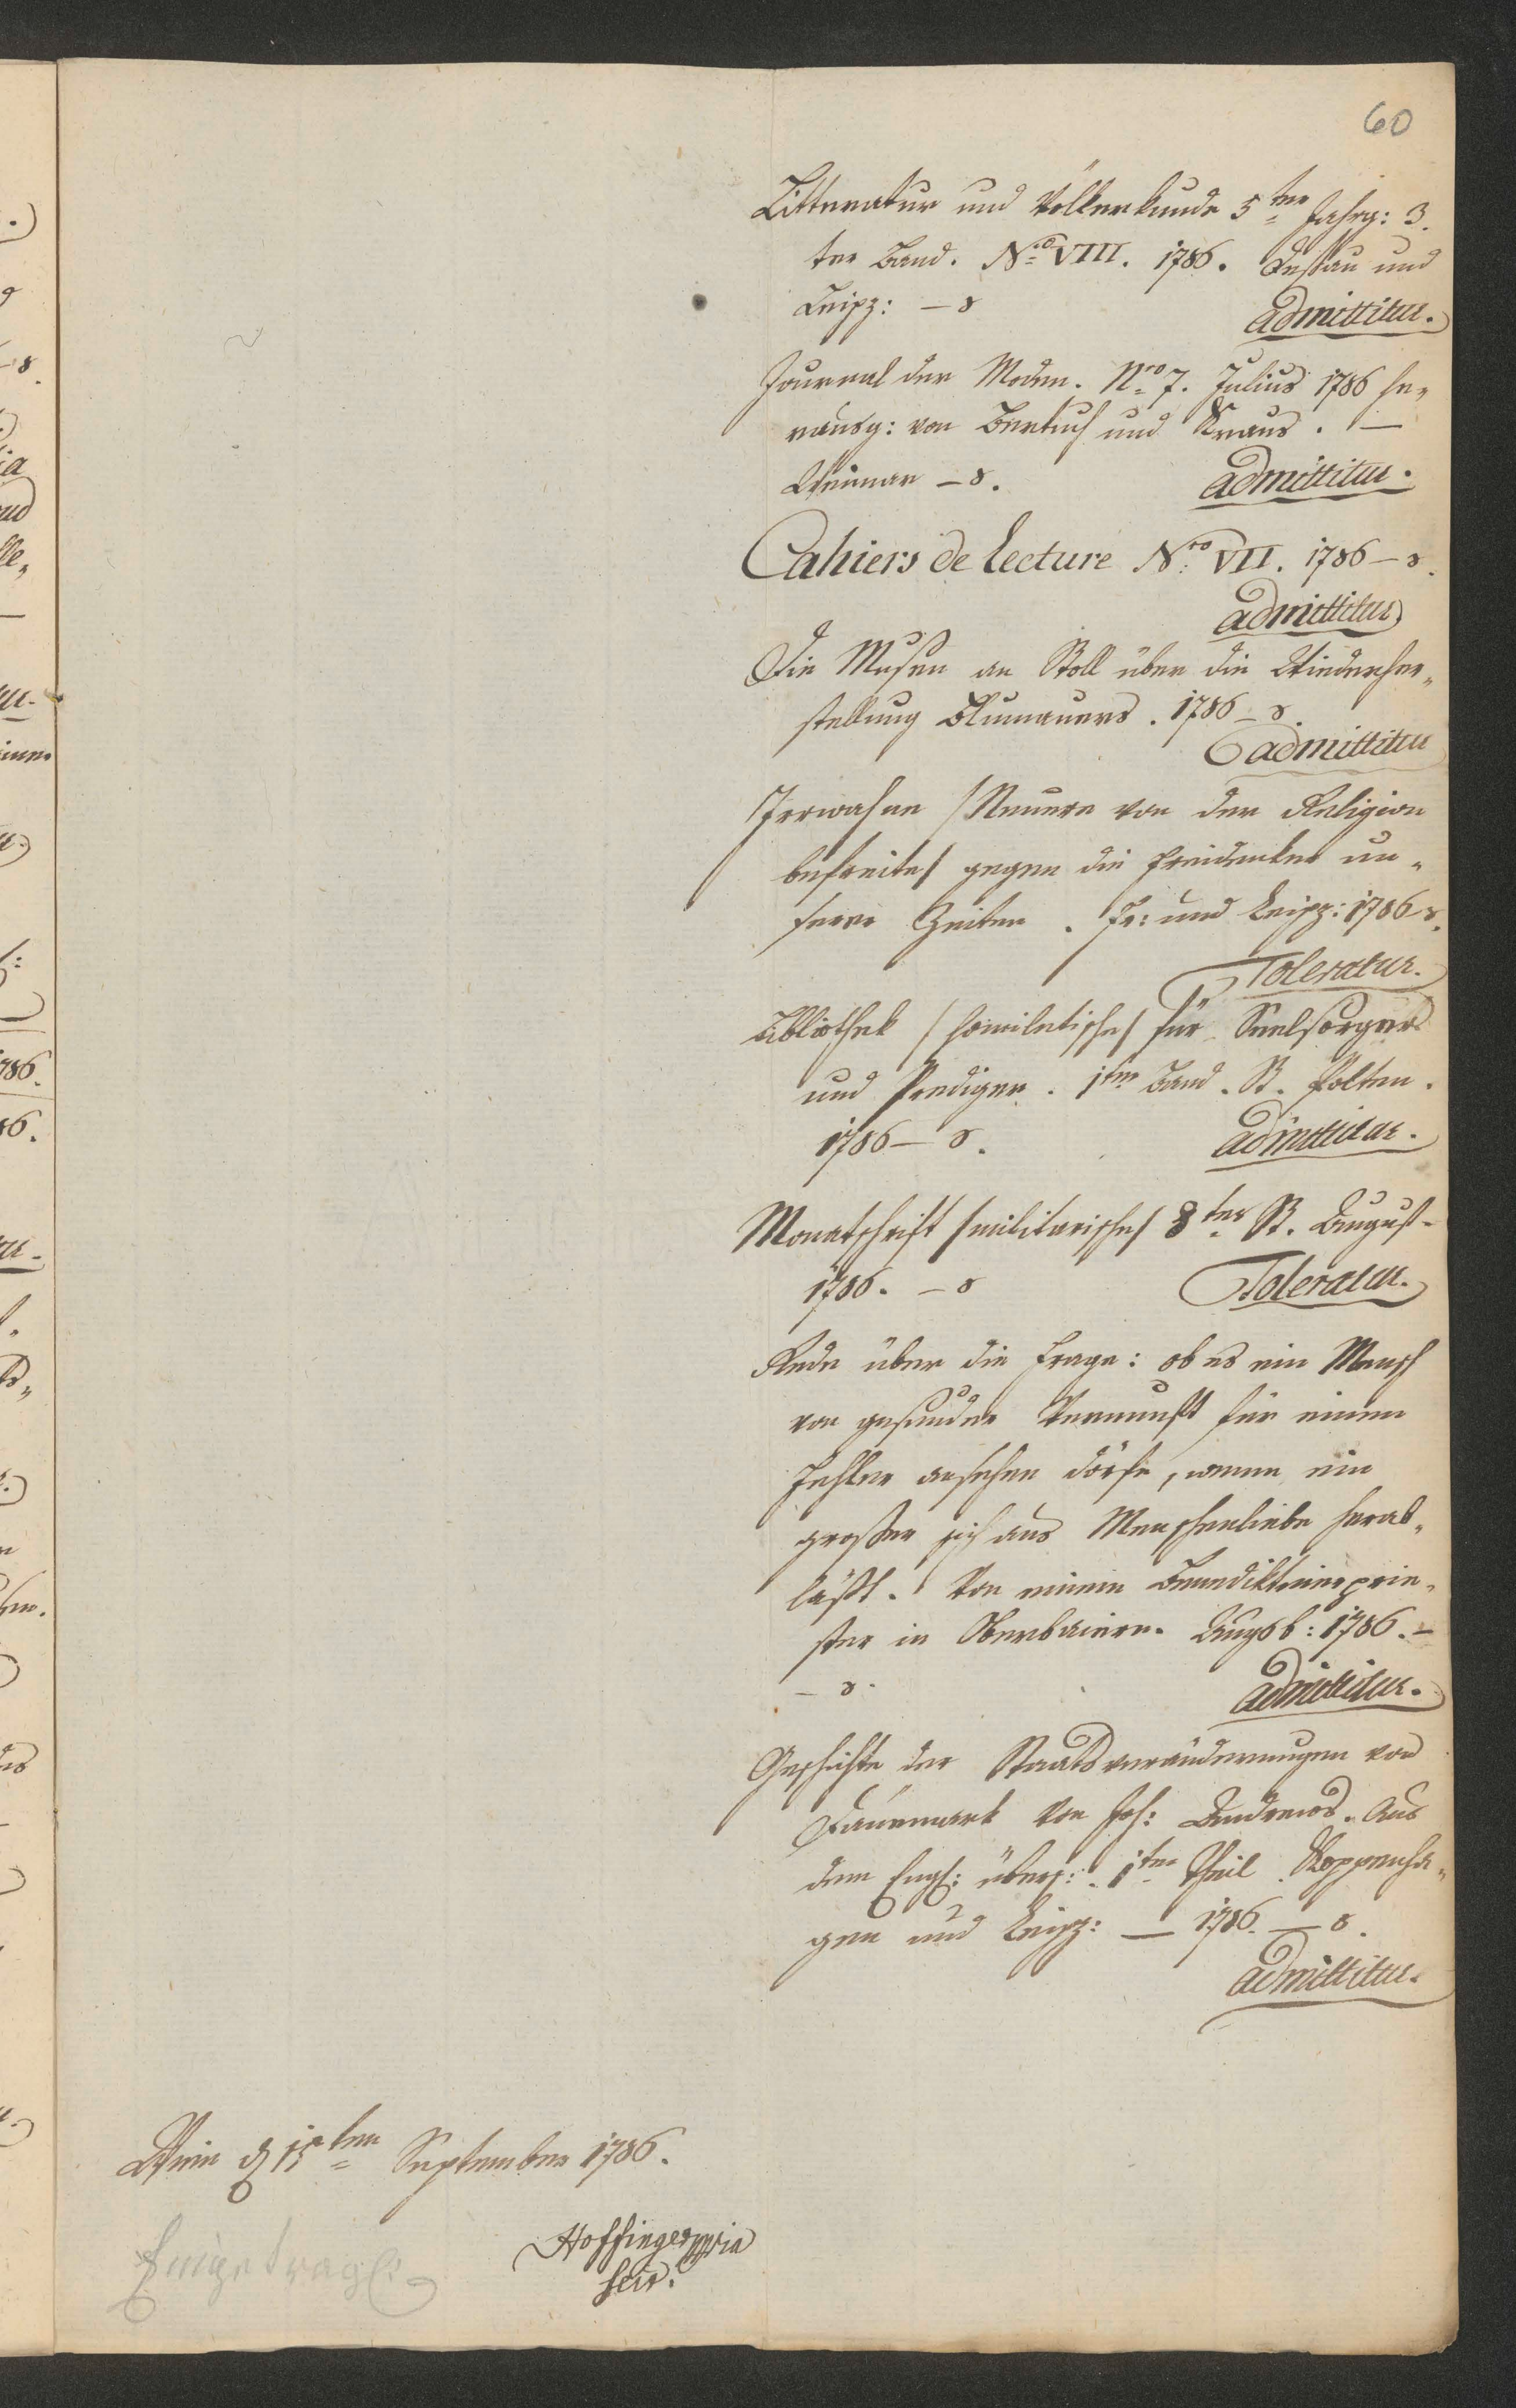 60
Litteratur und Völkerkunde 5ter Jahrg: 3.
ter Band. Nro VIII. 1786. Dessau und
Leipz: – 8
admittitur.
Journal der Moden. Nro 7. Julius 1786 he„
rausg: von Bertuch und Kraus. –
Weimar – 8.
admittitur.
Cahiers de Lecture Nro VII. 1786 – 8.
admittitur
Die Musen an Stoll über die Wiederher„
stellung Blumauers. 1786 – 8.
admittitur
Irrwahne / Neuere von der Religion
befreite / gegen die Freidenker un„
serer Zeiten. Fr: und Leipz: 1786 – 8.
Toleratur.
Bibliothek / homiletische / für Seelsorger
und Prediger. 1ter Band. St. Polten.
1786 – 8.
admittitur.
Monatschrift / militarische / 8tes St. August
1786. – 8
Toleratur.
Rede über die Frage: ob es ein Mensch
von gesunder Vernunft für einen
Fehler ansehen dörfe, wenn ein
großer sich aus Menschenliebe herab„
läßt. Von einem Benediktinerprie„
ster in Oberbaiern. Augsb: 1786. –
– 8.
admittitur.
Geschichte der Staatsveränderungen von
Dännmark von Joh: Andrews. Aus
dem Engl: übers: 1ter Theil. Koppenha„
gen und Leipz: – 1786. – 8.
admittitur.
Wien d 15ten September 1786.
Hoffinger mpria
Secr.
Eingetragen